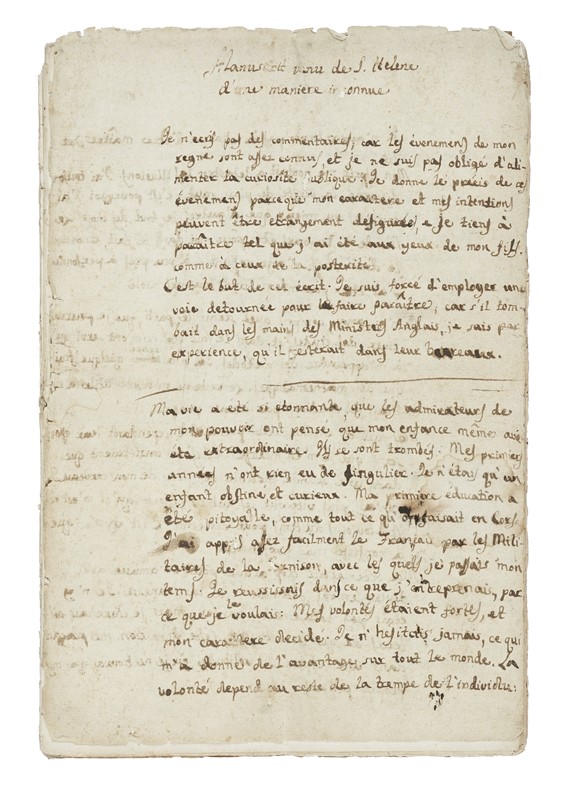 Manuscrit venu de S. Helene
d'une maniere inconnue
Je n'ecris pas des commentaires, car les évenemens de mon
regne sont assez connus, et je ne suis pas obligé d'ali-
menter la curiosité publique. Je donne le précis de ces
évenemens parceque mon caractere et mes intentions
peuvent être etrangement defigurés, e je tiens à
paraître tel que j'ai été aux yeux de mon fils.
comme à ceux de la posterité.
C'est le but de cet écrit. Je suis forcé d'employer une
voie detournée pour le faire paraître, car s'il tom-
bait dans les mains des Ministres Anglais, je sais par
experience, qu'il resterait dans leur bureaux.
Ma vie a été si etonnante, que les admirateurs de
mon pouvoir ont pensé, que mon enfance même avait
été extraordinaire. Ils se sont trombés. Mes premiers
années n'ont rien eu de singulier. Je n'étais qu'un
enfant obstiné, et curieux. Ma première éducation a
été pitoyable, comme tout ce qu'on faisait en Cors
J'ai appris assez facilement le Français par les Mili-
taires de la garnison, avec les quels je passais mon
tems. Je reussissois dans ce que j'entreprenais, par
ce que je le voulais: Mes volontés étaient fortes, et
mon caractère decidé. Je n'hesitais jamais, ce qui
m'a donné de l'avantage sur tout le monde. La
volonté depend au reste de la trempe de l'individu: